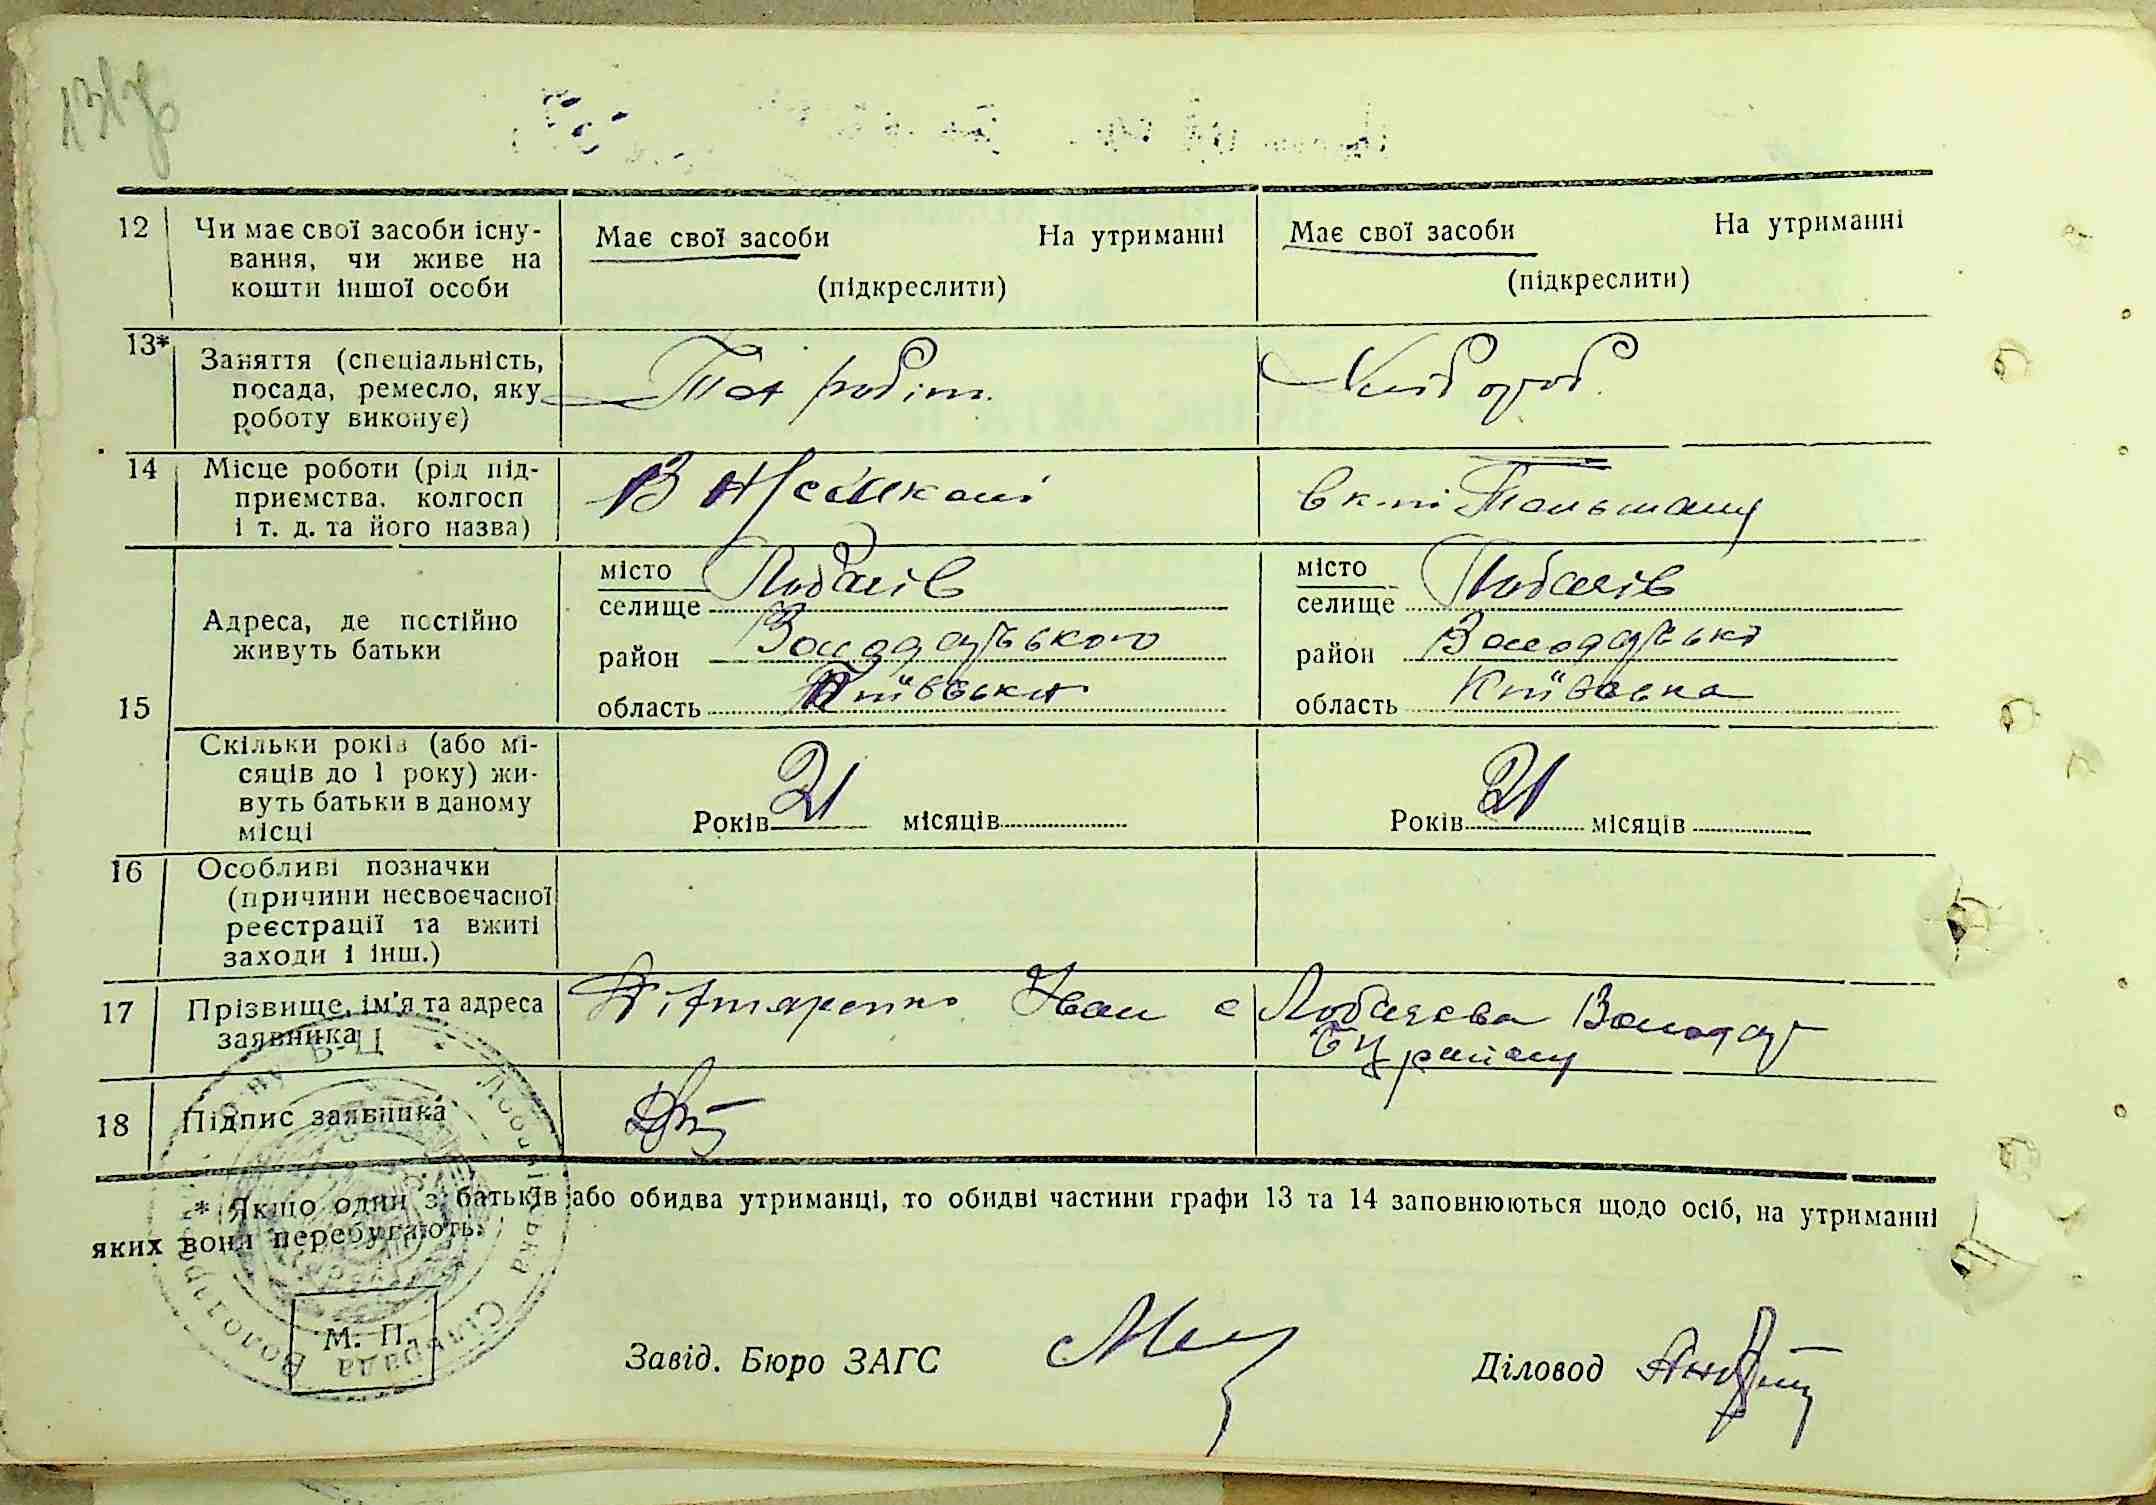 12 Чи має свої засоби існу- Має свої засоби На утриманні Має свої засоби На утриманні
вання, чи живе на (підкреслити) (підкреслити)
кошти іншої особи
13* Заняття (спеціальність, Хлібороб
посада, ремесло, яку
роботу виконує)
14 Місце роботи (рід під- В
приємства, колгосп
і т. д. та його назва)
15 Адреса, де постійно
живуть батьки
місто Лобачів місто Лобачів
селище селище
район Володарського район Володарськ
область Київська область Київська
Скільки років (або мі-
сяців до 1 року) жи-
вуть батьки в даному
місці
Років 21 місяців Років 21 місяців
16 Особливі позначки
(причини несвоєчасної
реєстрації та вжиті
заходи і інш.)
17 Прізвище, ім'я та адреса Іван с Лобачева Володар
заявника БЦ району
18 Підпис заявника
* Якщо один з батьків або обидва утриманці, то обидві частини графи 13 та 14 заповнюються щодо осіб, на утриманні
яких вони перебувають.
М. П.
Завід. Бюро ЗАГС Діловод